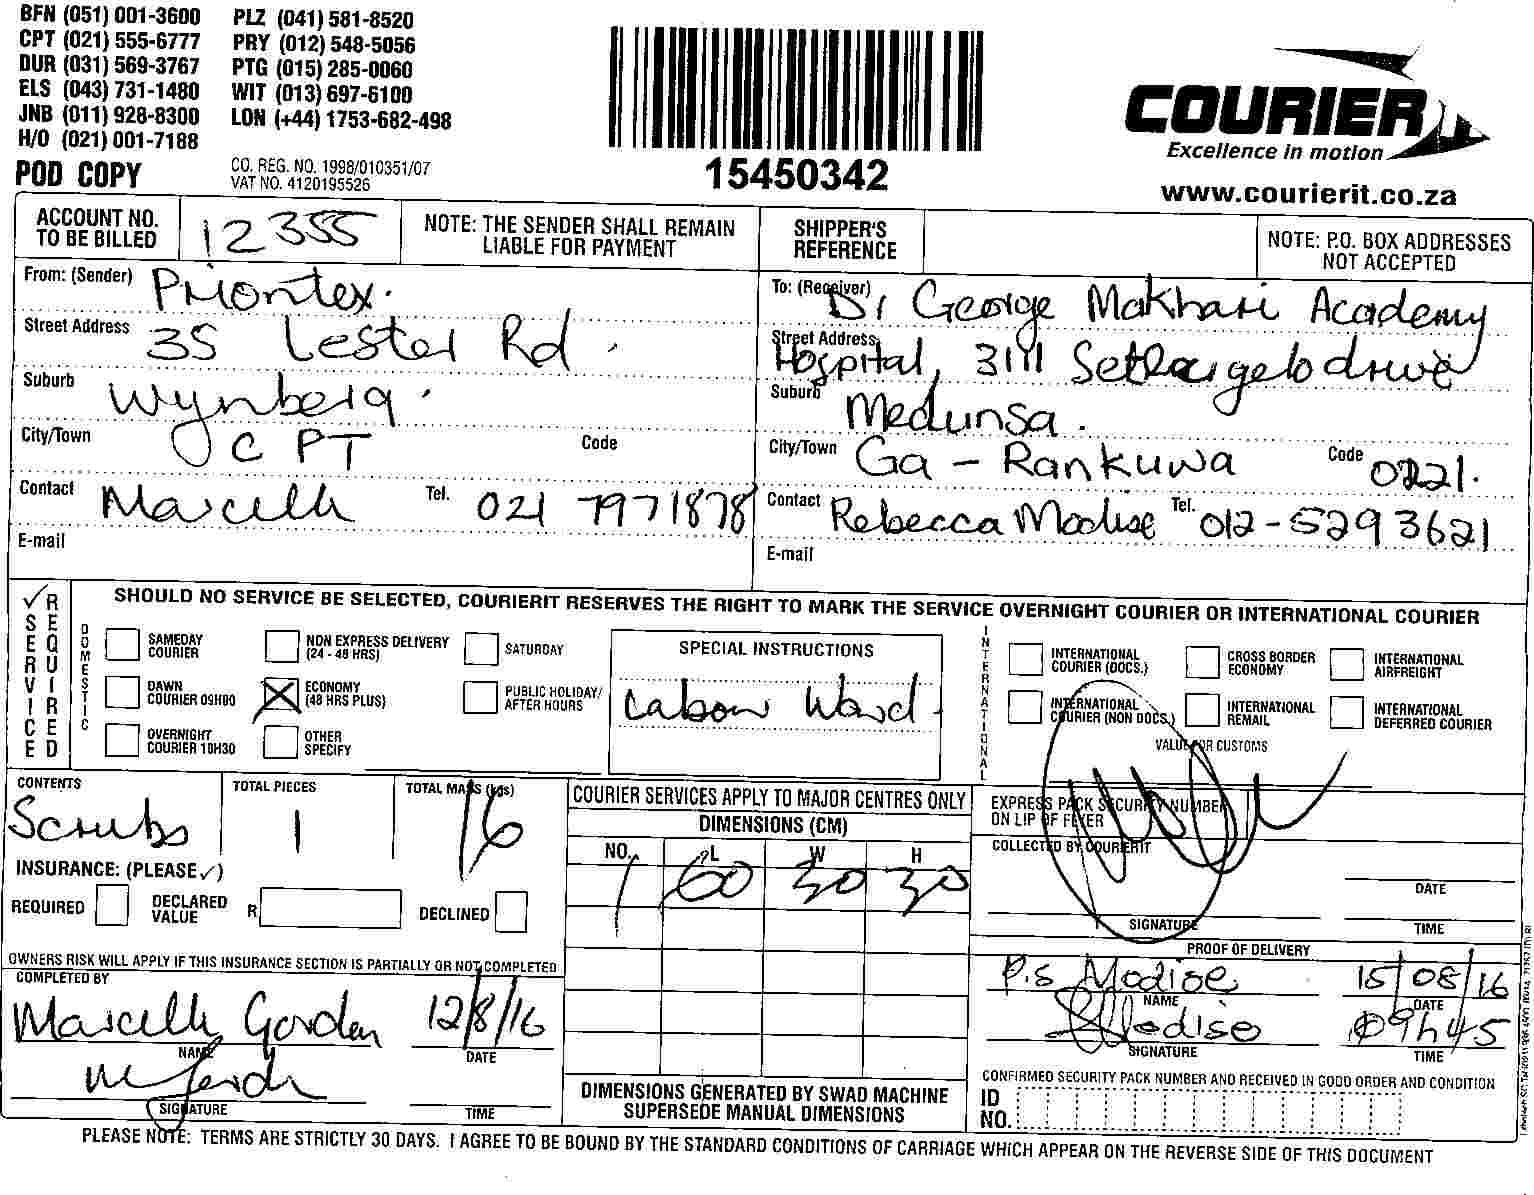 BFN (051) 001-3600 PLZ (041) 581-8520
CPT (021) 555-6777 PRY (012) 548-5056
DUR (031) 569-3767 PTG (015) 285-0060
ELS (043) 731-1480 WIT (013) 697-6100
JNB (011) 928-8300 LON (+44) 1753-682-498
H/O (021) 001-7188
POD COPY
CO. REG. NO. 1998/010351/07
VAT NO. 4120195526
15450342
COURIER IT
Excellence in motion
www.courierit.co.za
ACCOUNT NO. TO BE BILLED 12355
NOTE: THE SENDER SHALL REMAIN LIABLE FOR PAYMENT
SHIPPER'S REFERENCE
NOTE: P.O. BOX ADDRESSES NOT ACCEPTED
From: (Sender) Priontex.
Street Address 35 Lester Rd.
Suburb Wynberg.
City/Town CPT Code
Contact Marcelle Tel. 021 7971878
E-mail
To: (Receiver) Dr George Makhari Academy
Street Address Hospital, 3111 Setlhargelo drive
Suburb Medunsa.
City/Town Ga-Rankuwa Code 0221.
Contact Rebecca Modise Tel. 012-5293621
E-mail
✓ SERVICE REQUIRED
SHOULD NO SERVICE BE SELECTED, COURIERIT RESERVES THE RIGHT TO MARK THE SERVICE OVERNIGHT COURIER OR INTERNATIONAL COURIER
DOMESTIC
SAMEDAY COURIER
NON EXPRESS DELIVERY (24 - 48 HRS)
SATURDAY
DAWN COURIER 09H00
ECONOMY (48 HRS PLUS)
PUBLIC HOLIDAY/ AFTER HOURS
OVERNIGHT COURIER 10H30
OTHER SPECIFY
SPECIAL INSTRUCTIONS
Labour Ward.
INTERNATIONAL
INTERNATIONAL COURIER (DOCS.)
CROSS BORDER ECONOMY
INTERNATIONAL AIRFREIGHT
INTERNATIONAL COURIER (NON DOCS.)
INTERNATIONAL REMAIL
INTERNATIONAL DEFERRED COURIER
VALUE FOR CUSTOMS
CONTENTS Scrubs
TOTAL PIECES 1
TOTAL MASS (kgs) 16
INSURANCE: (PLEASE ✓)
REQUIRED
DECLARED VALUE R
DECLINED
OWNERS RISK WILL APPLY IF THIS INSURANCE SECTION IS PARTIALLY OR NOT COMPLETED
COURIER SERVICES APPLY TO MAJOR CENTRES ONLY
DIMENSIONS (CM)
NO. L W H
1 60 30 30
DIMENSIONS GENERATED BY SWAD MACHINE SUPERSEDE MANUAL DIMENSIONS
EXPRESS PACK SECURITY NUMBER ON LIP OF FLYER
COLLECTED BY COURIERIT
DATE
SIGNATURE
TIME
COMPLETED BY
Marcelle Gorden 12/8/16
NAME DATE
SIGNATURE TIME
PROOF OF DELIVERY
P.S Modise 15/08/16
NAME DATE
Modise 09h45
SIGNATURE TIME
CONFIRMED SECURITY PACK NUMBER AND RECEIVED IN GOOD ORDER AND CONDITION
ID NO.
PLEASE NOTE: TERMS ARE STRICTLY 30 DAYS. I AGREE TO BE BOUND BY THE STANDARD CONDITIONS OF CARRIAGE WHICH APPEAR ON THE REVERSE SIDE OF THIS DOCUMENT